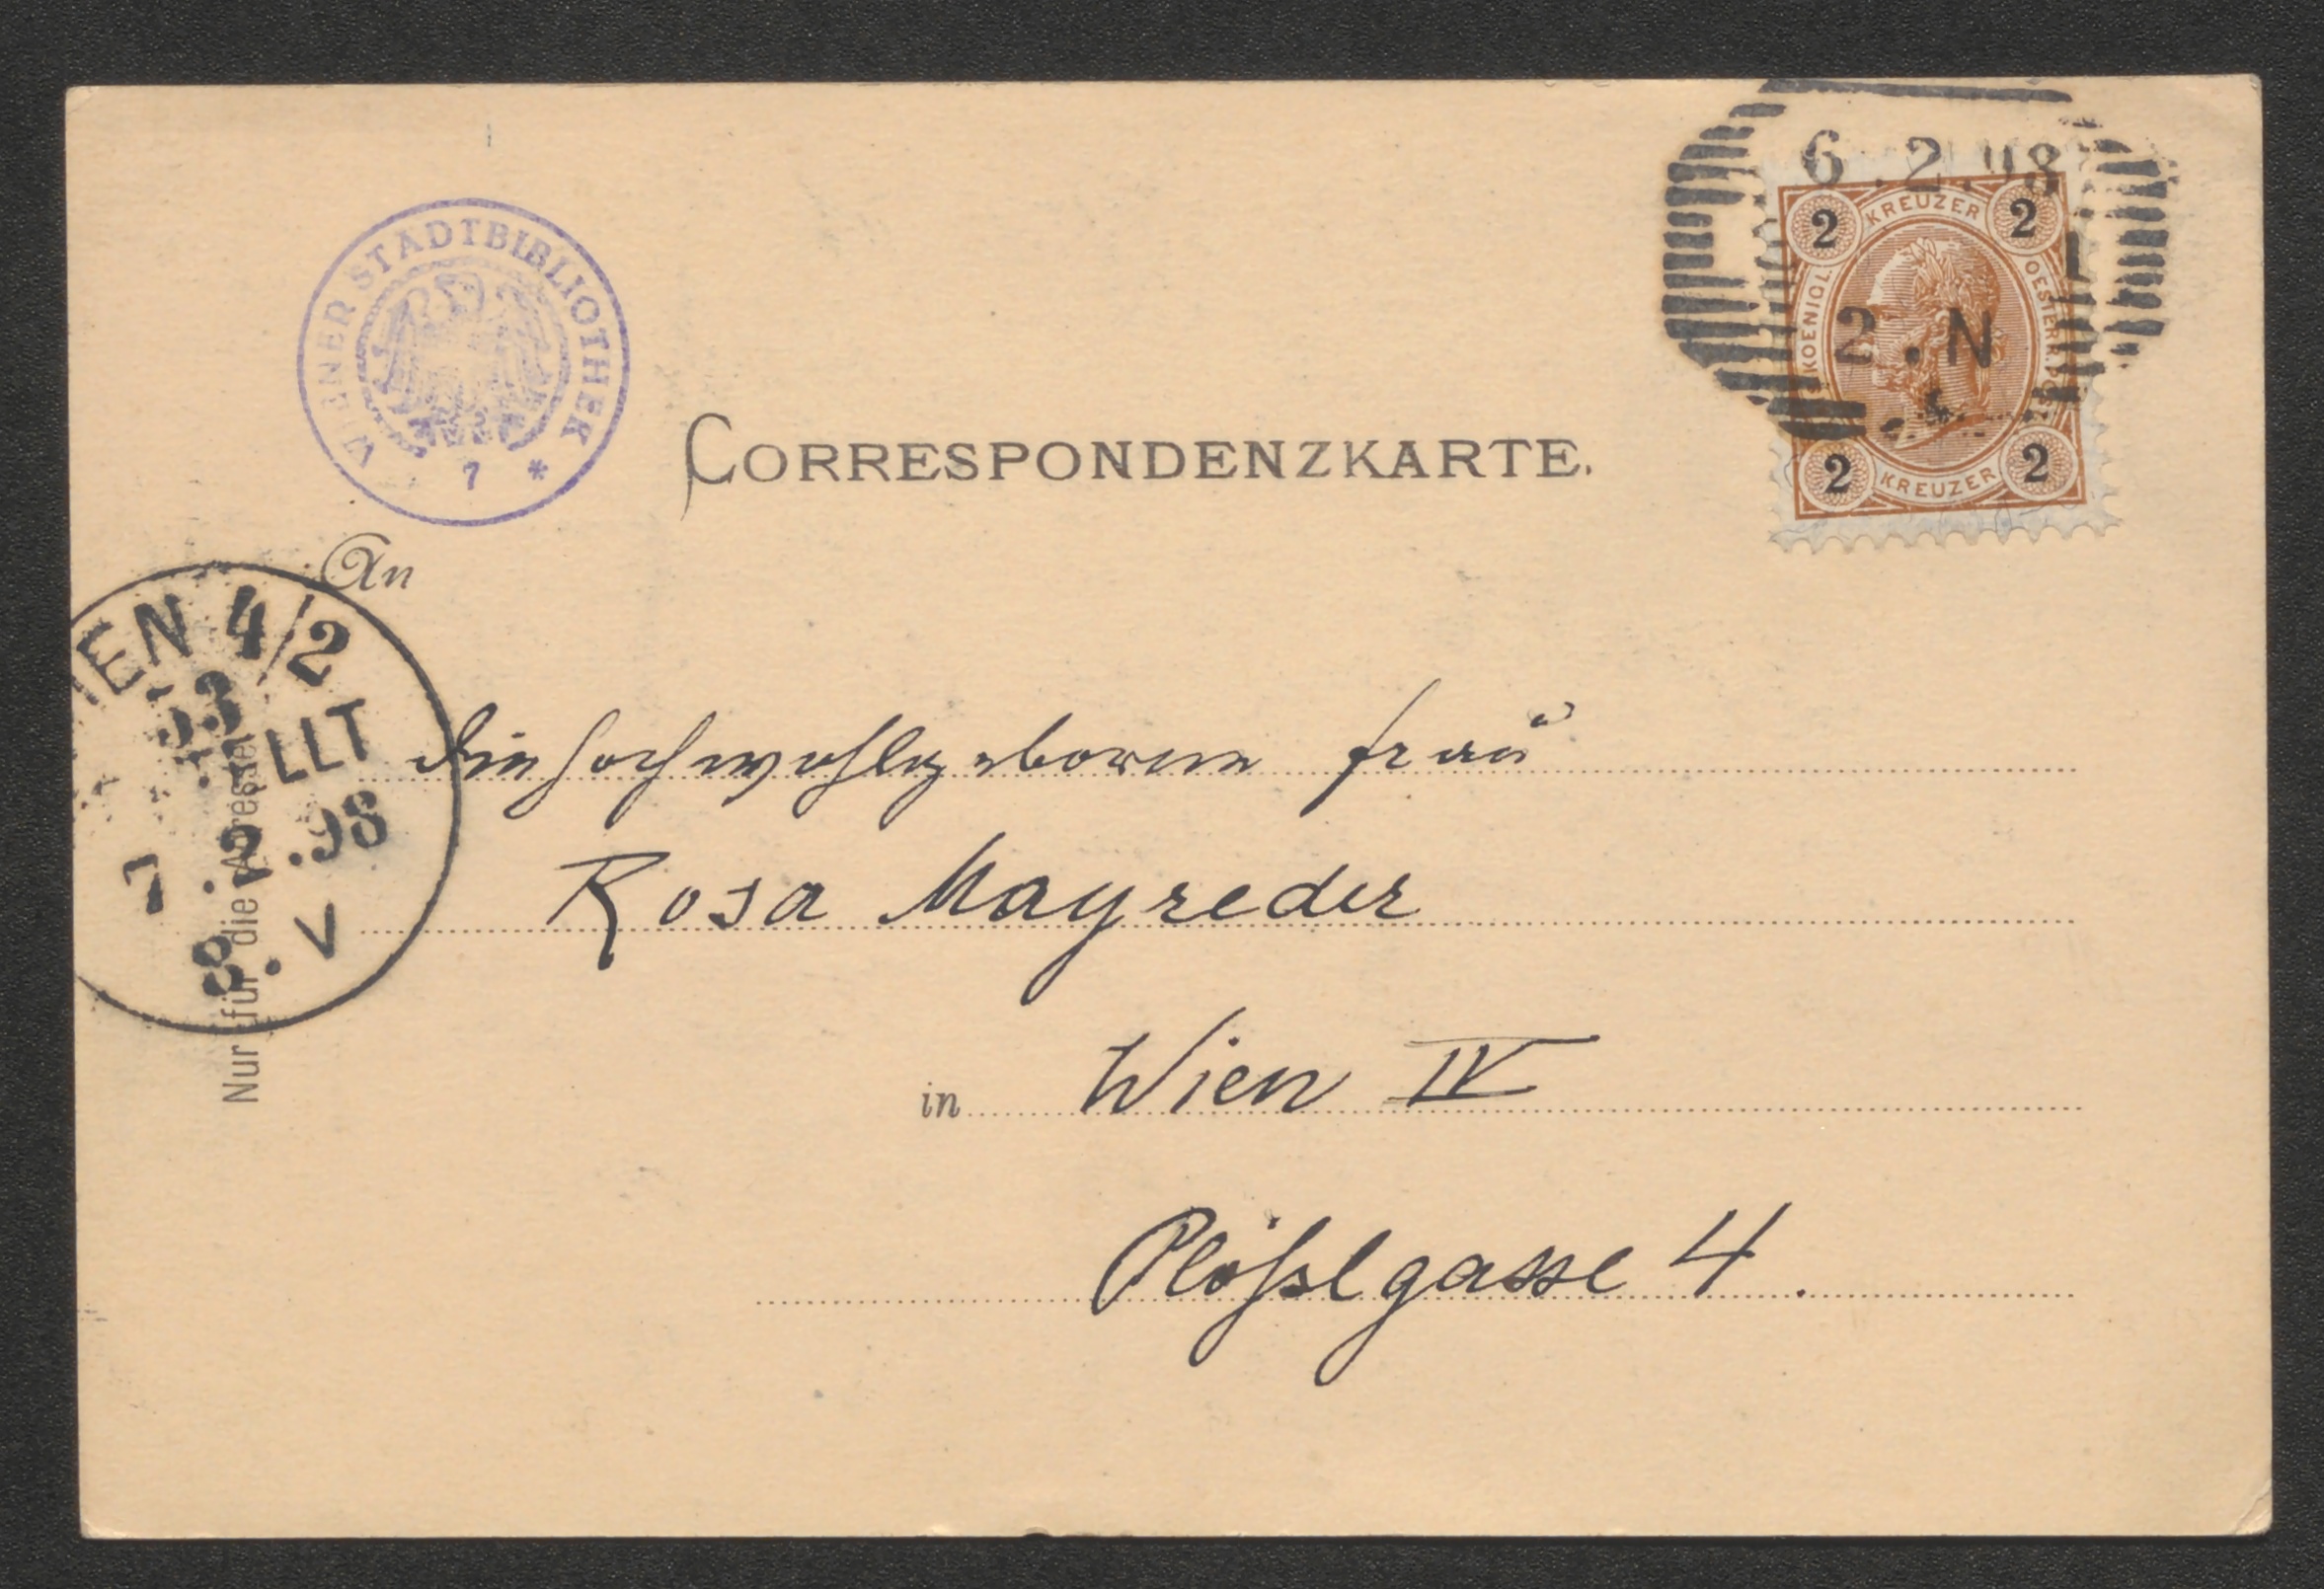 6.2.98
2 KREUZER 2
KOENIGL. OESTERR. POST
2.N
2 KREUZER 2
WIENER STADTBIBLIOTHEK
7 *
CORRESPONDENZKARTE.
An
IEN 4/2
53
LLT
7.2.98
8.V
Nur für die Adresse
die hochwohlgeborene Frau
Rosa Mayreder
in Wien IV
Plößlgasse 4.